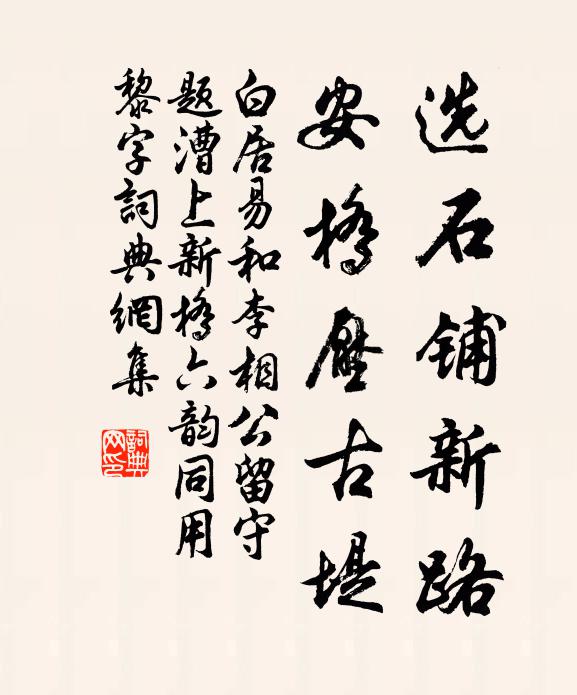 选石铺新路
安桥压古堤
白居易和李相公留守
题漕上新桥六韵同用
黎字詞典網集
詞典
网印